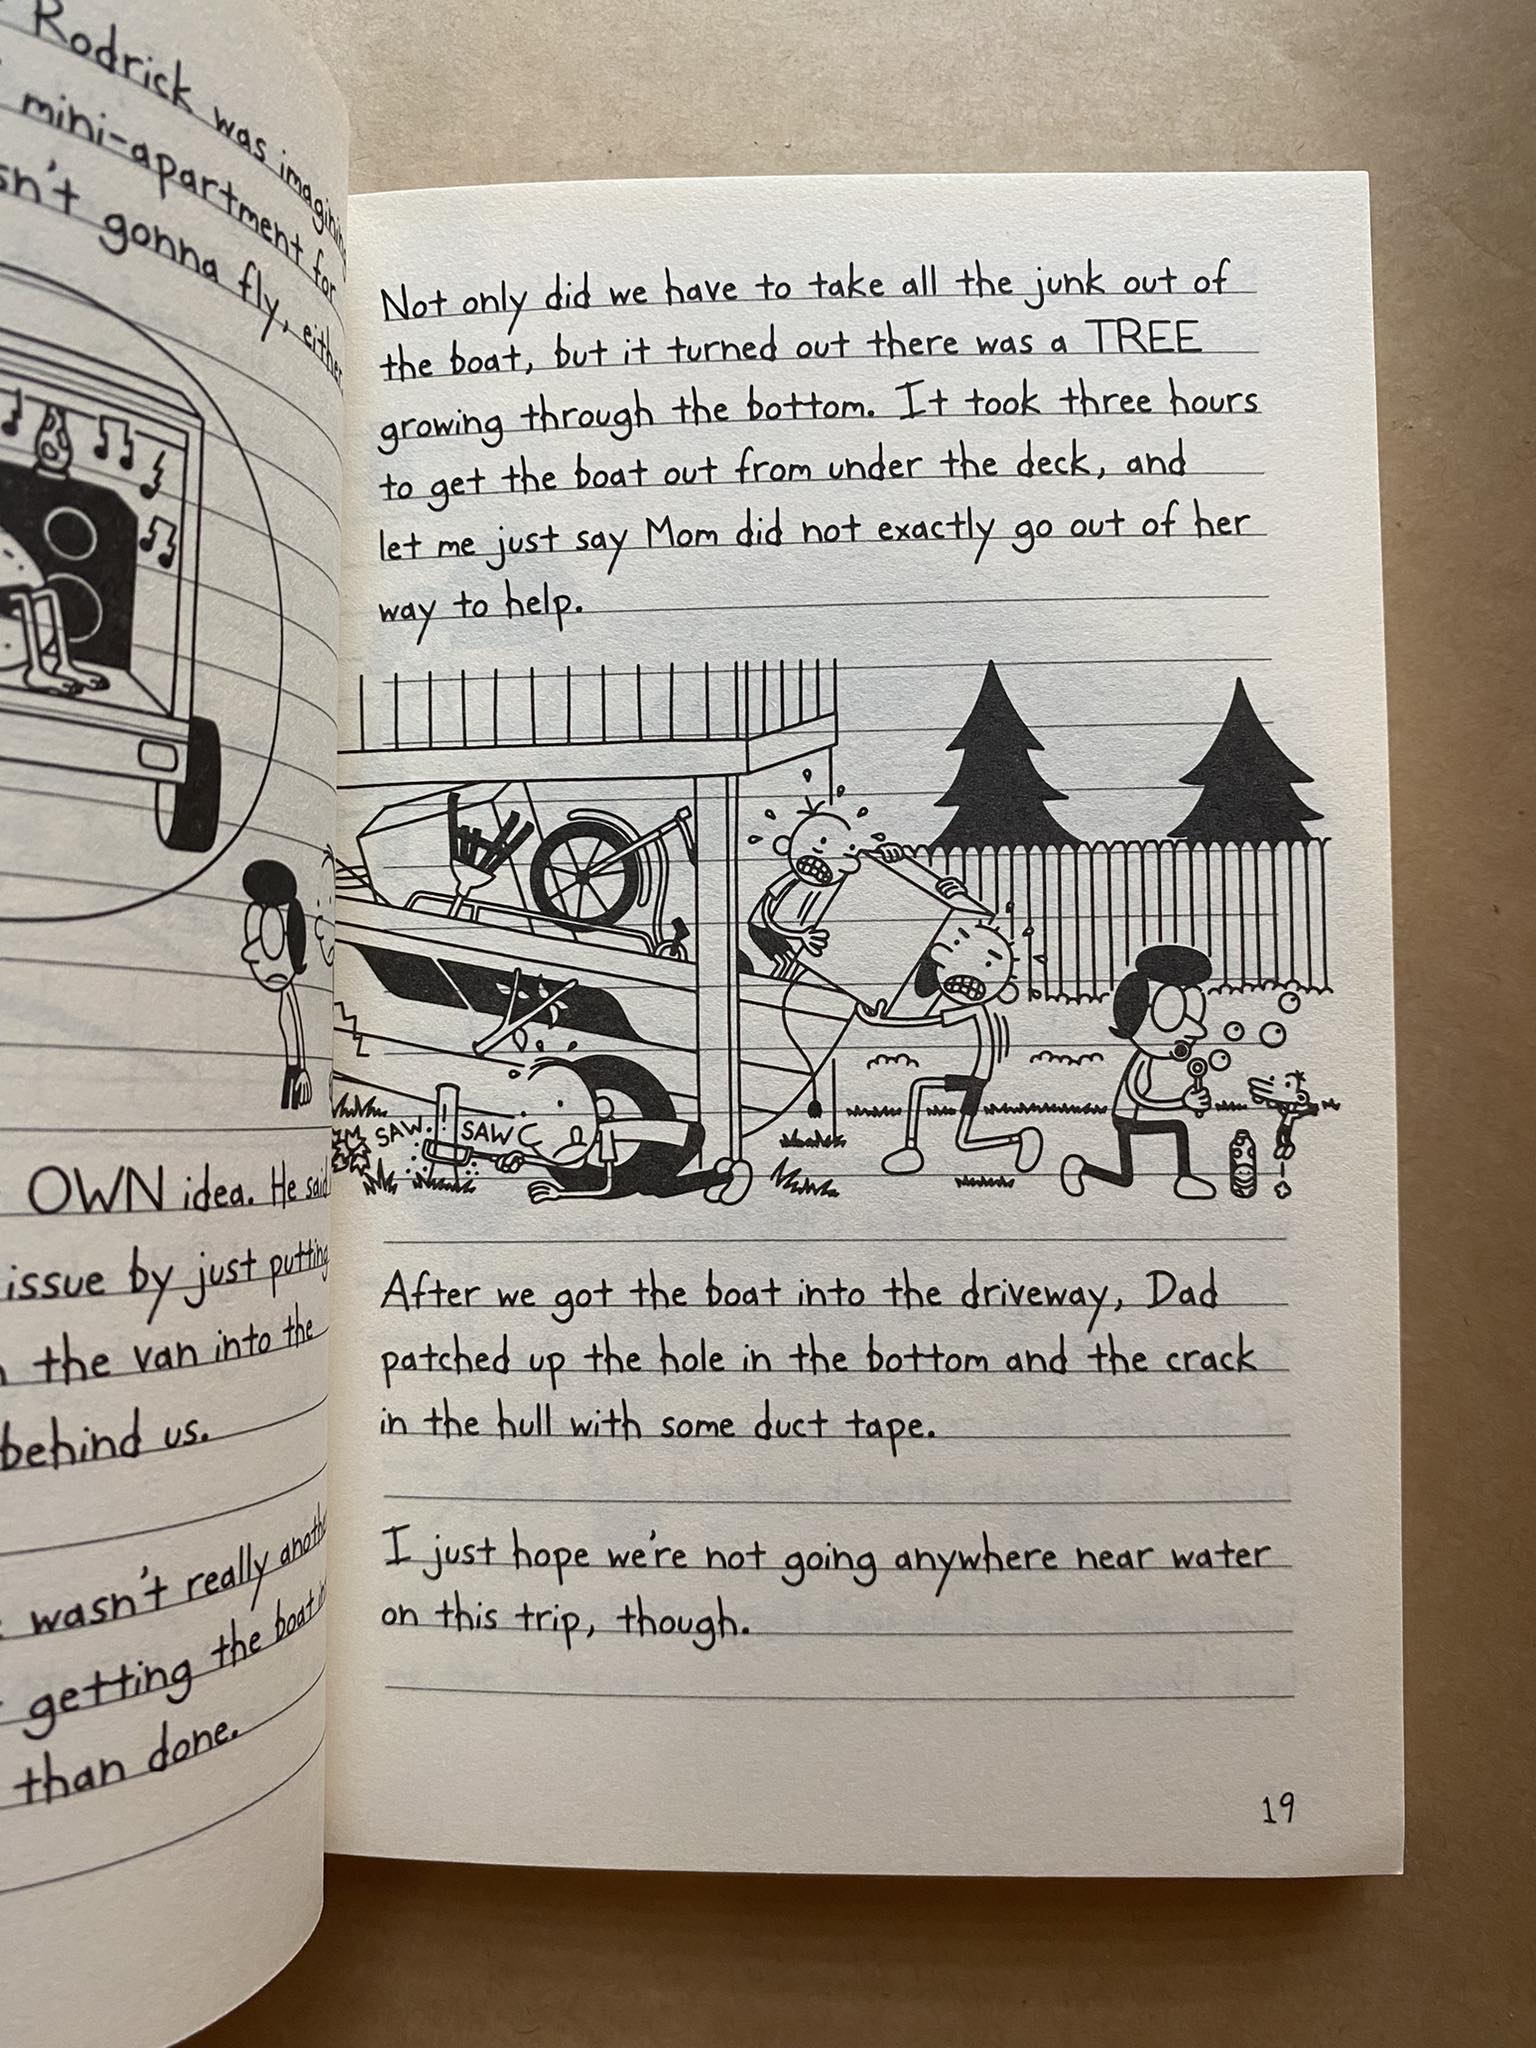 Rodrick was
mini-apartment for
gonna fly, either
OWN idea. He said
issue by just putting
the van into the
behind us.
wasn't really
getting the boat
than done.
Not only did we have to take all the junk out of
the boat, but it turned out there was a TREE
growing through the bottom. It took three hours
to get the boat out from under the deck, and
let me just say Mom did not exactly go out of her
way to help.
SAW! SAW
After we got the boat into the driveway, Dad
patched up the hole in the bottom and the crack
in the hull with some duct tape.
I just hope we're not going anywhere near water
on this trip, though.
19